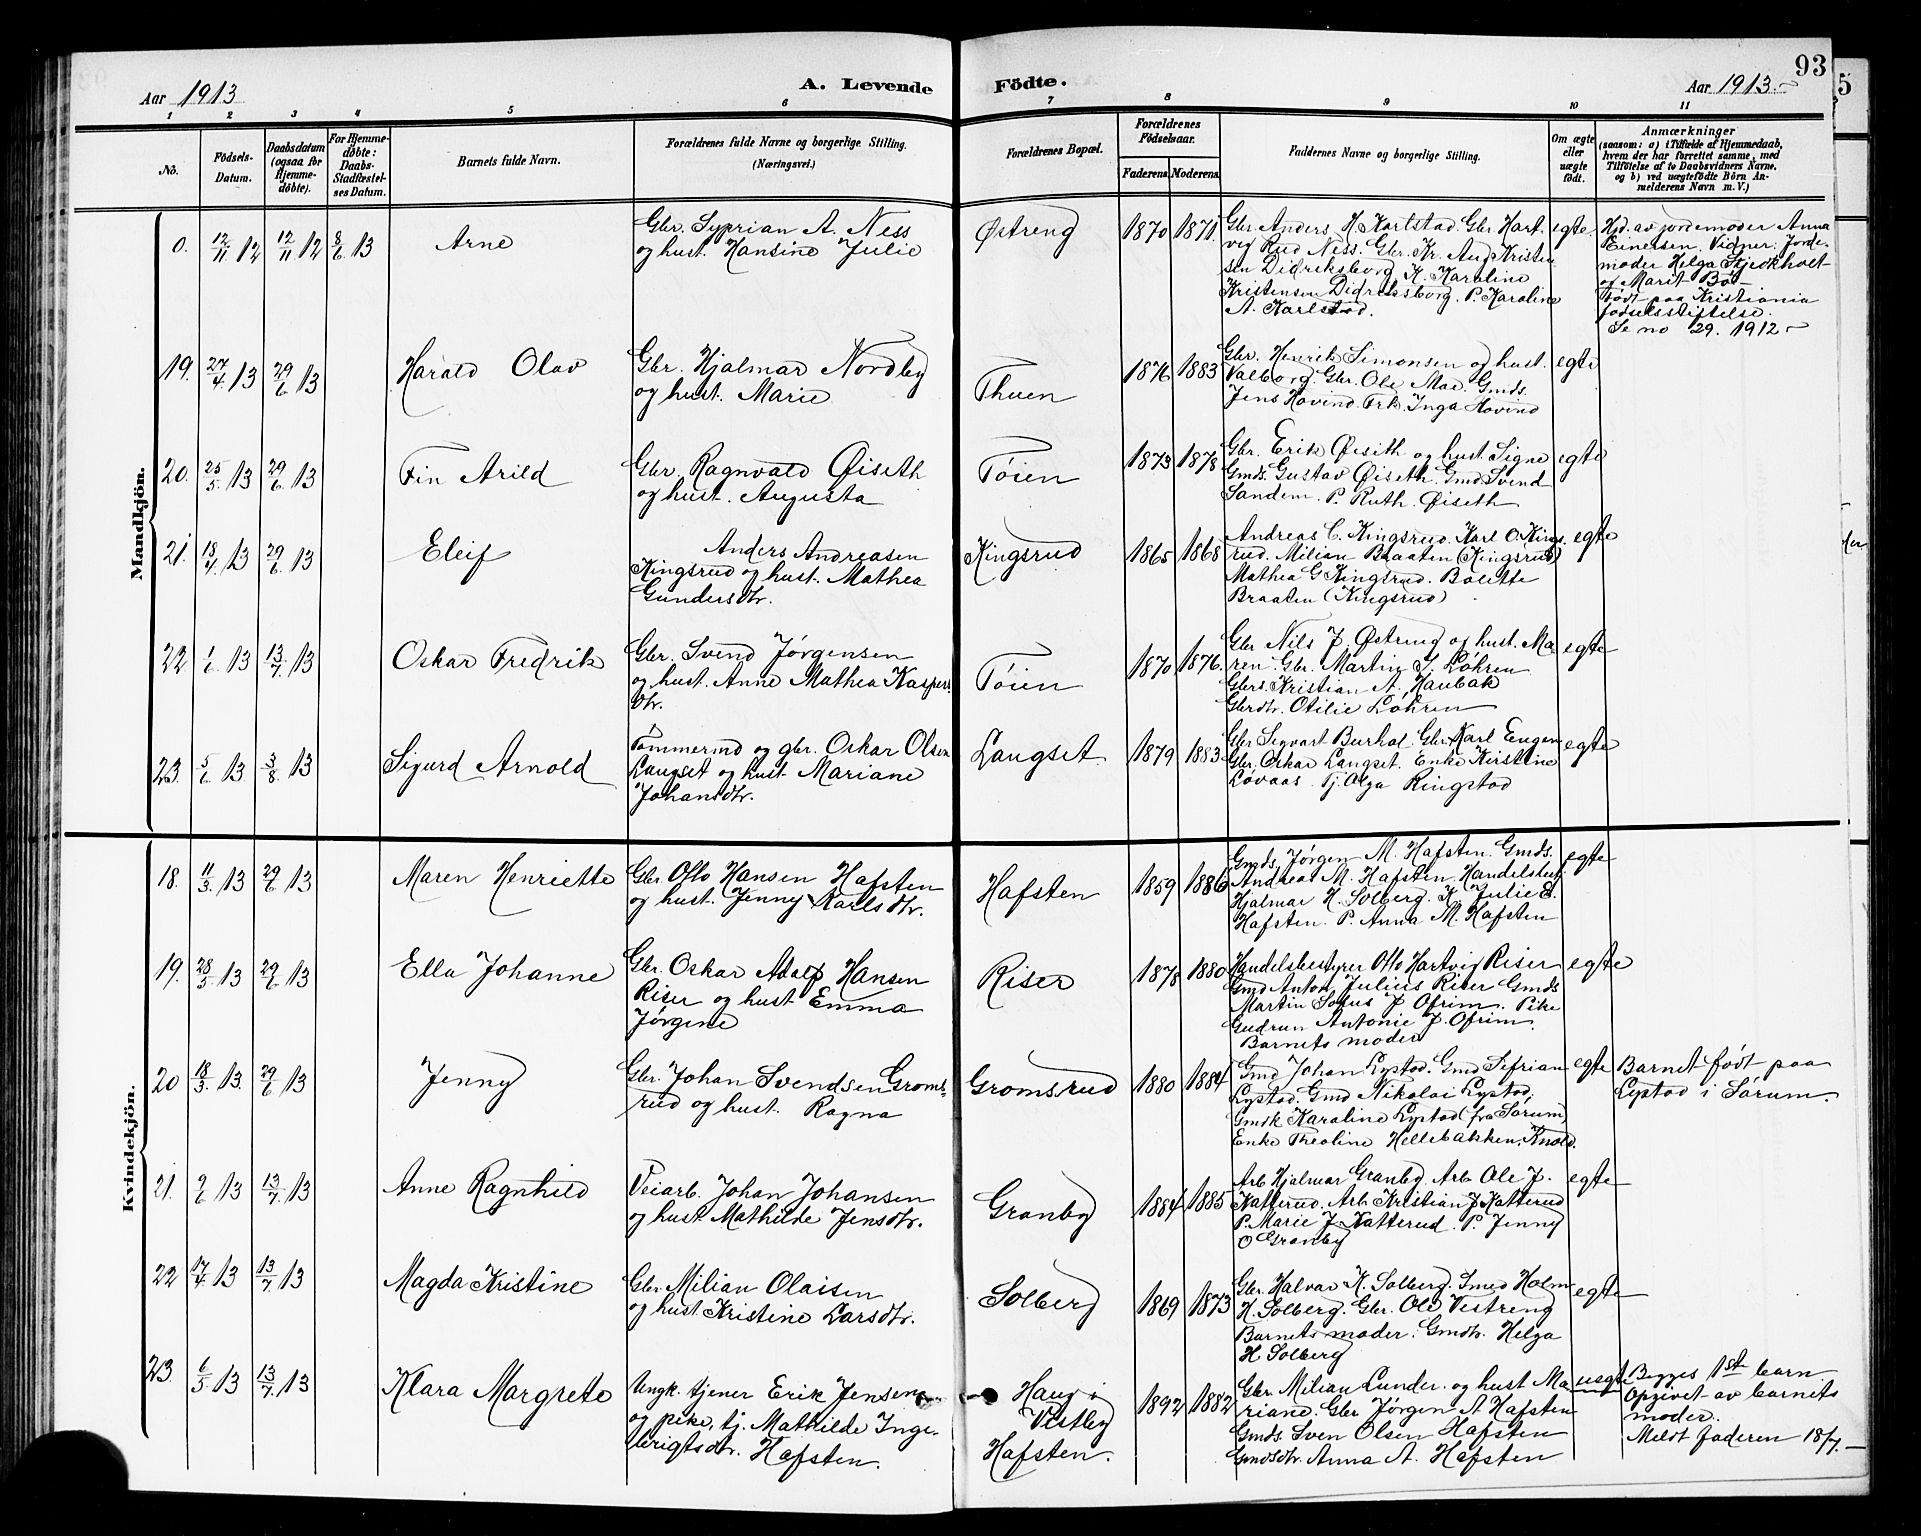 Aar 1913 A. Levende Födte. Aar 1913. 93
1 2 3 4 5 6 7 8 9 10 11
No.
Födsels-
Datum.
Daabsdatum
(ogsaa for
Hjemme-
döbte).
For Hjemme-
döbte:
Daabs-
Stadfæstel-
ses Datum.
Barnets fulde Navn.
Forældrenes fulde Navne og borgerlige Stilling.
(Næringsvei.)
Forældrenes Bopæl.
Forældrenes
Födselsaar.
Faderens. Moderens.
Faddernes Navne og borgerlige Stilling.
Om ægte
eller
uægte
födt.
Anmærkninger
(saasom: a) i Tilfælde af Hjemmedaab,
hvem der har forrettet samme, med
Tilföielse af to Daabsvidners Navne,
og b) ved uægtefödte Börn An-
melderens Navn m. V.)
Mandkjön.
0. 12/11 12 12/11 12 8/6 13 Arne
Gbr. Syprian A. Ness
og hust. Hansine Julie
Østreng 1870 1871
Gbr. Anders H. Karlstad. Gbr Hart.
vig Rud Ness. Gbr. Kr. Aug Kristen
sen Didriksborg. K. Karoline
Kristensen Didriksborg. P. Karoline
A. Karlstad.
egte.
Hjd. av jordemoder Anna
Einersen. Vidner: Jorde-
moder Helga Skjedkholt
og Marit Bø
Født paa Kristiania
fødselsstiftelse.
Se no 29. 1912
19. 27/4 13 29/6 13 Harald Olav
Gbr. Hjalmar Nordby
og hust. Marie
Thuen 1876 1883
Gbr. Henrik Simonsen og hust.
Valborg. Gbr. Ole Moe. Gmds.
Jens Hovind. Frk. Inga Hovind
egte
20. 25/5 13 29/6 13 Fin Arild
Gbr. Ragnvald Øiseth
og hust. Augusta
Tøien 1873 1878
Gbr. Erik Øiseth og hust. Signe
Gmds. Gustav Øiseth. Gmd. Svend
Sandem. P. Ruth. Øiseth
egte
21. 18/4 13 29/6 13 Eleif
Anders Andreasen
Kingsrud og hust. Mathea
Gundersdtr.
Kingsrud 1865 1868
Andreas C. Kingsrud. Karl O. Kings.
rud. Milian Braaten (Kingsrud)
Mathea G Kingsrud. Bolette
Braaten (Kingsrud)
egte
22 1/6 13 13/7 13 Oskar Fredrik
Gbr. Svend Jørgensen
og hust. Anne Mathea Kaspers
dtr.
Tøien 1870 1876.
Gbr Nils J. Østreng og hust. Ma
ren. Gbr. Martin S. Løhren
Gbrs. Kristian A. Haubak
Gbrdtr. Otilie Løhren
egte
23. 5/6 13 3/8 13 Sigurd Arnold
Tømmermd og gbr. Oskar Olsen
Langset og hust. Mariane
Johansdtr.
Langset 1879 1883
Gbr Segvart Burhol. Gbr. Karl Eugen
Gbr. Oskar Langset. Enke Kirstine
Løvaas. Tj. Olga Ringstad
egte
Kvindekjön.
18. 11/3 13 29/6 13 Maren Henriette
Gbr. Otto Hansen Hafsten
og hust. Jenny Karlsdtr.
Hafsten 1859 1886
Gmds. Jørgen M. Hafsten. Gmds.
Andreas M. Hafsten. Handelsbest.
Hjalmar H. Solberg. K. Julie E.
Hafsten. P. Anna M. Hafsten
egte
19. 28/5 13 29/6 13 Ella Johanne
Gbr. Oskar Adolf Hansen
Riser og hust Emma
Jørgine
Riser 1878 1880
Handelsbestyrer Otto Hartvig Riser
Gmd Anton Julius Riser Gmds
Martin Sofus J. Ofrim. Pike
Gudrun Antonie J. Ofrim.
Barnets moder
egte
20 18/3 13. 29/6 13 Jenny
Gbr. Johan Svendsen Groms-
rud og hust. Ragna
Gromsrud 1880 1884
Gmd Johan Lystad. Gmd Sefrian
Lystad. Gmd Nikolai Lystad,
Gmdk Karoline Lystad (fra Sørum)
Enke Theoline Hellebakken,
egte
Barnet født paa
Lystad i Sørum.
21. 9/6 13 13/7 13 Anne Ragnhild
Veiarb. Johan Johansen
og hust. Mathilde Jensdtr.
Granby 1884 1885
Arb Hjalmar Granby. Arb Ole J.
Katterud. Arb. Kristian J Katterud
P. Marie J. Katterud. P. Jenny
O Granby
egte
22 17/4 13 13/7 13 Magda Kristine
Gbr. Milian Olaisen
og hust. Kristine Larsdtr.
Solberg 1869 1873
Gbr. Halvar K. Solberg. Smed Holm
H. Solberg. Gbr. Ole Vestreng
Barnets moder. Gmdtr. Helga
H. Solberg
egte
23. 6/5 13 13/7 13 Klara Margrete
Ungk. tjener Erik Jensen
og pike, tj. Mathilde Inge-
brigtsdtr. Hafsten.
Haug i
Vestby
Hafsten.
1892 1882
Gbr. Milian Lunder og hust Ma
riane. Gbr Jørgen A Hafsten
Gmds. Sven Olsen Hafsten
Gmdsdtr. Anna A. Hafsten
uegte
Begges 1st barn
Opgivet av barnets
moder.
Meldt faderen 18/7.